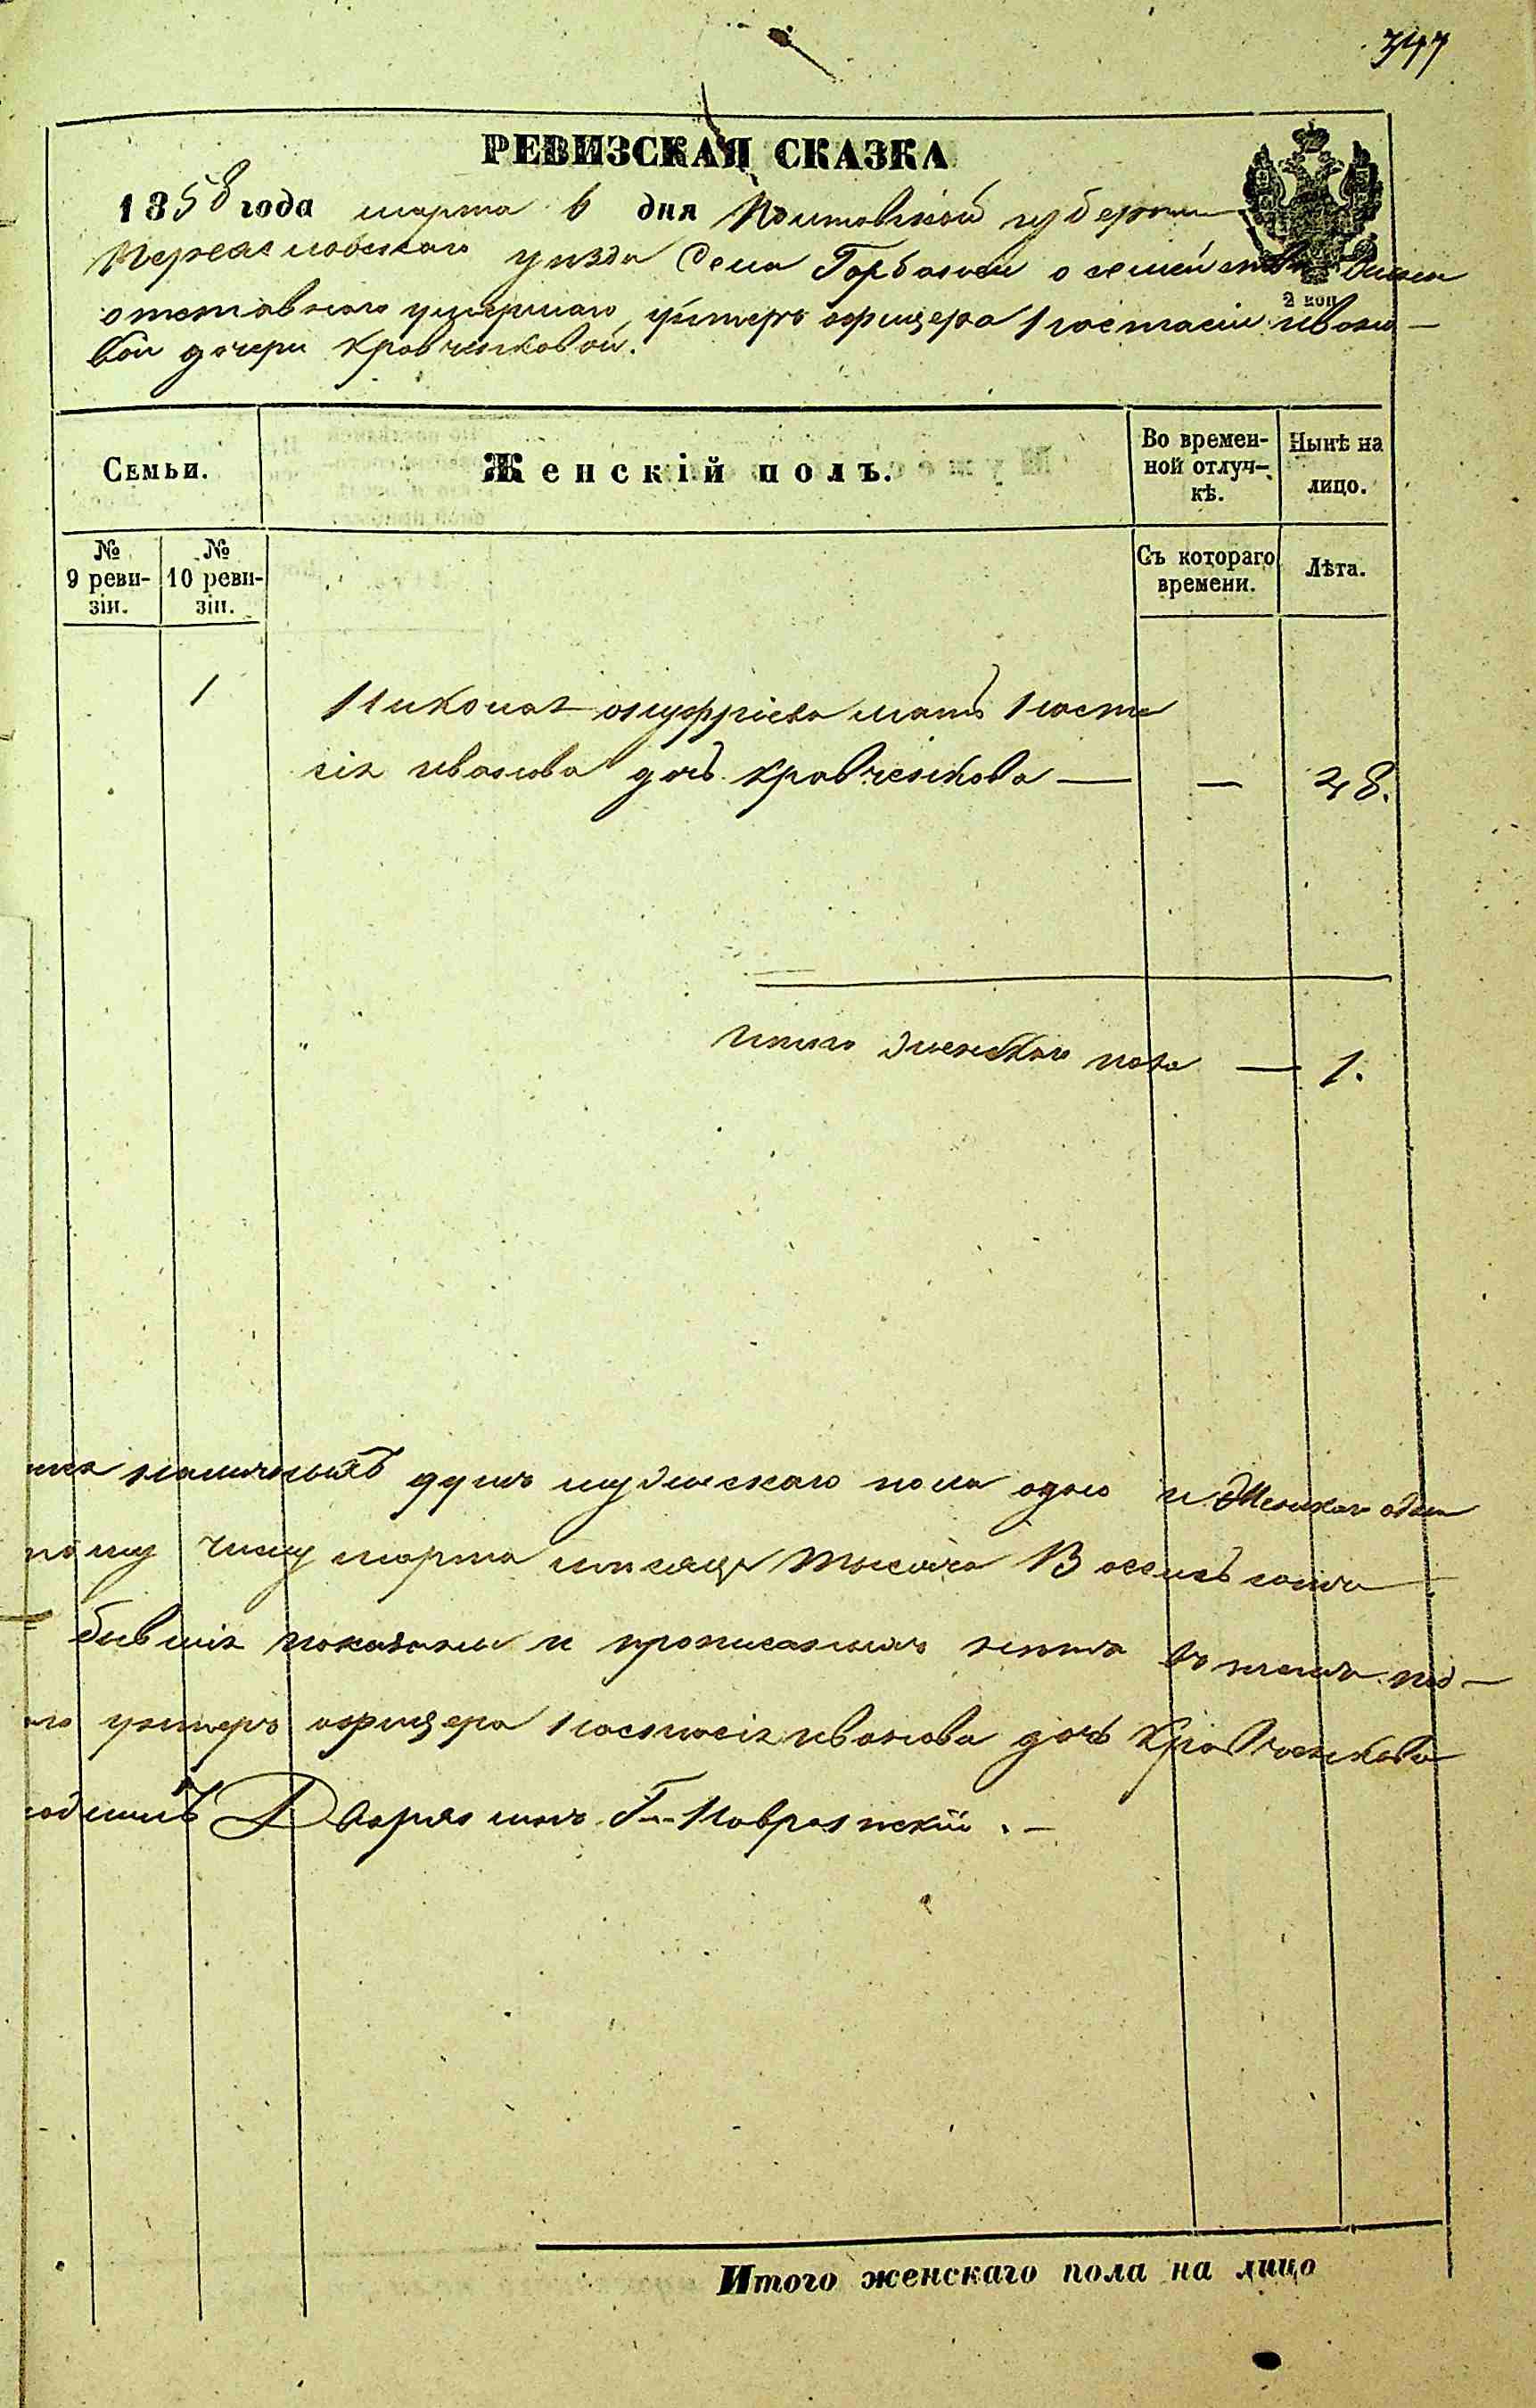 347
РЕВИЗСКАЯ СКАЗКА
1858 года марта 6 дня Полтавской губернии
Переяславского уезда Села Горбаней о семействе жены
отставного умершаго унтеръ офицера Настасии Ивано–
вой дочери Кравченковой.
2 коп
Семьи.
Женскій полъ.
Во времен-
ной отлуч-
кѣ.
Нынѣ на
лицо.
№
9 реви-
зіи.
№
10 реви-
зіи.
Съ котораго
времени.
Лѣта.
1 Никона Онуфріева мать Наста
сія Иванова дочь Кравченкова — — 48.
Итого женскаго пола — 1.
наличныхъ душъ мужескаго пола одна и Женскаго одна
числу марта месяца Тысяча Восемьсотъ
бывшія показаны и прописанныхъ летъ въ чемъ под–
унтеръ офицера Настасія Иванова дочь Кравченкова
Дворянинъ Г. Навроцкій . –
Итого женскаго пола на лицо